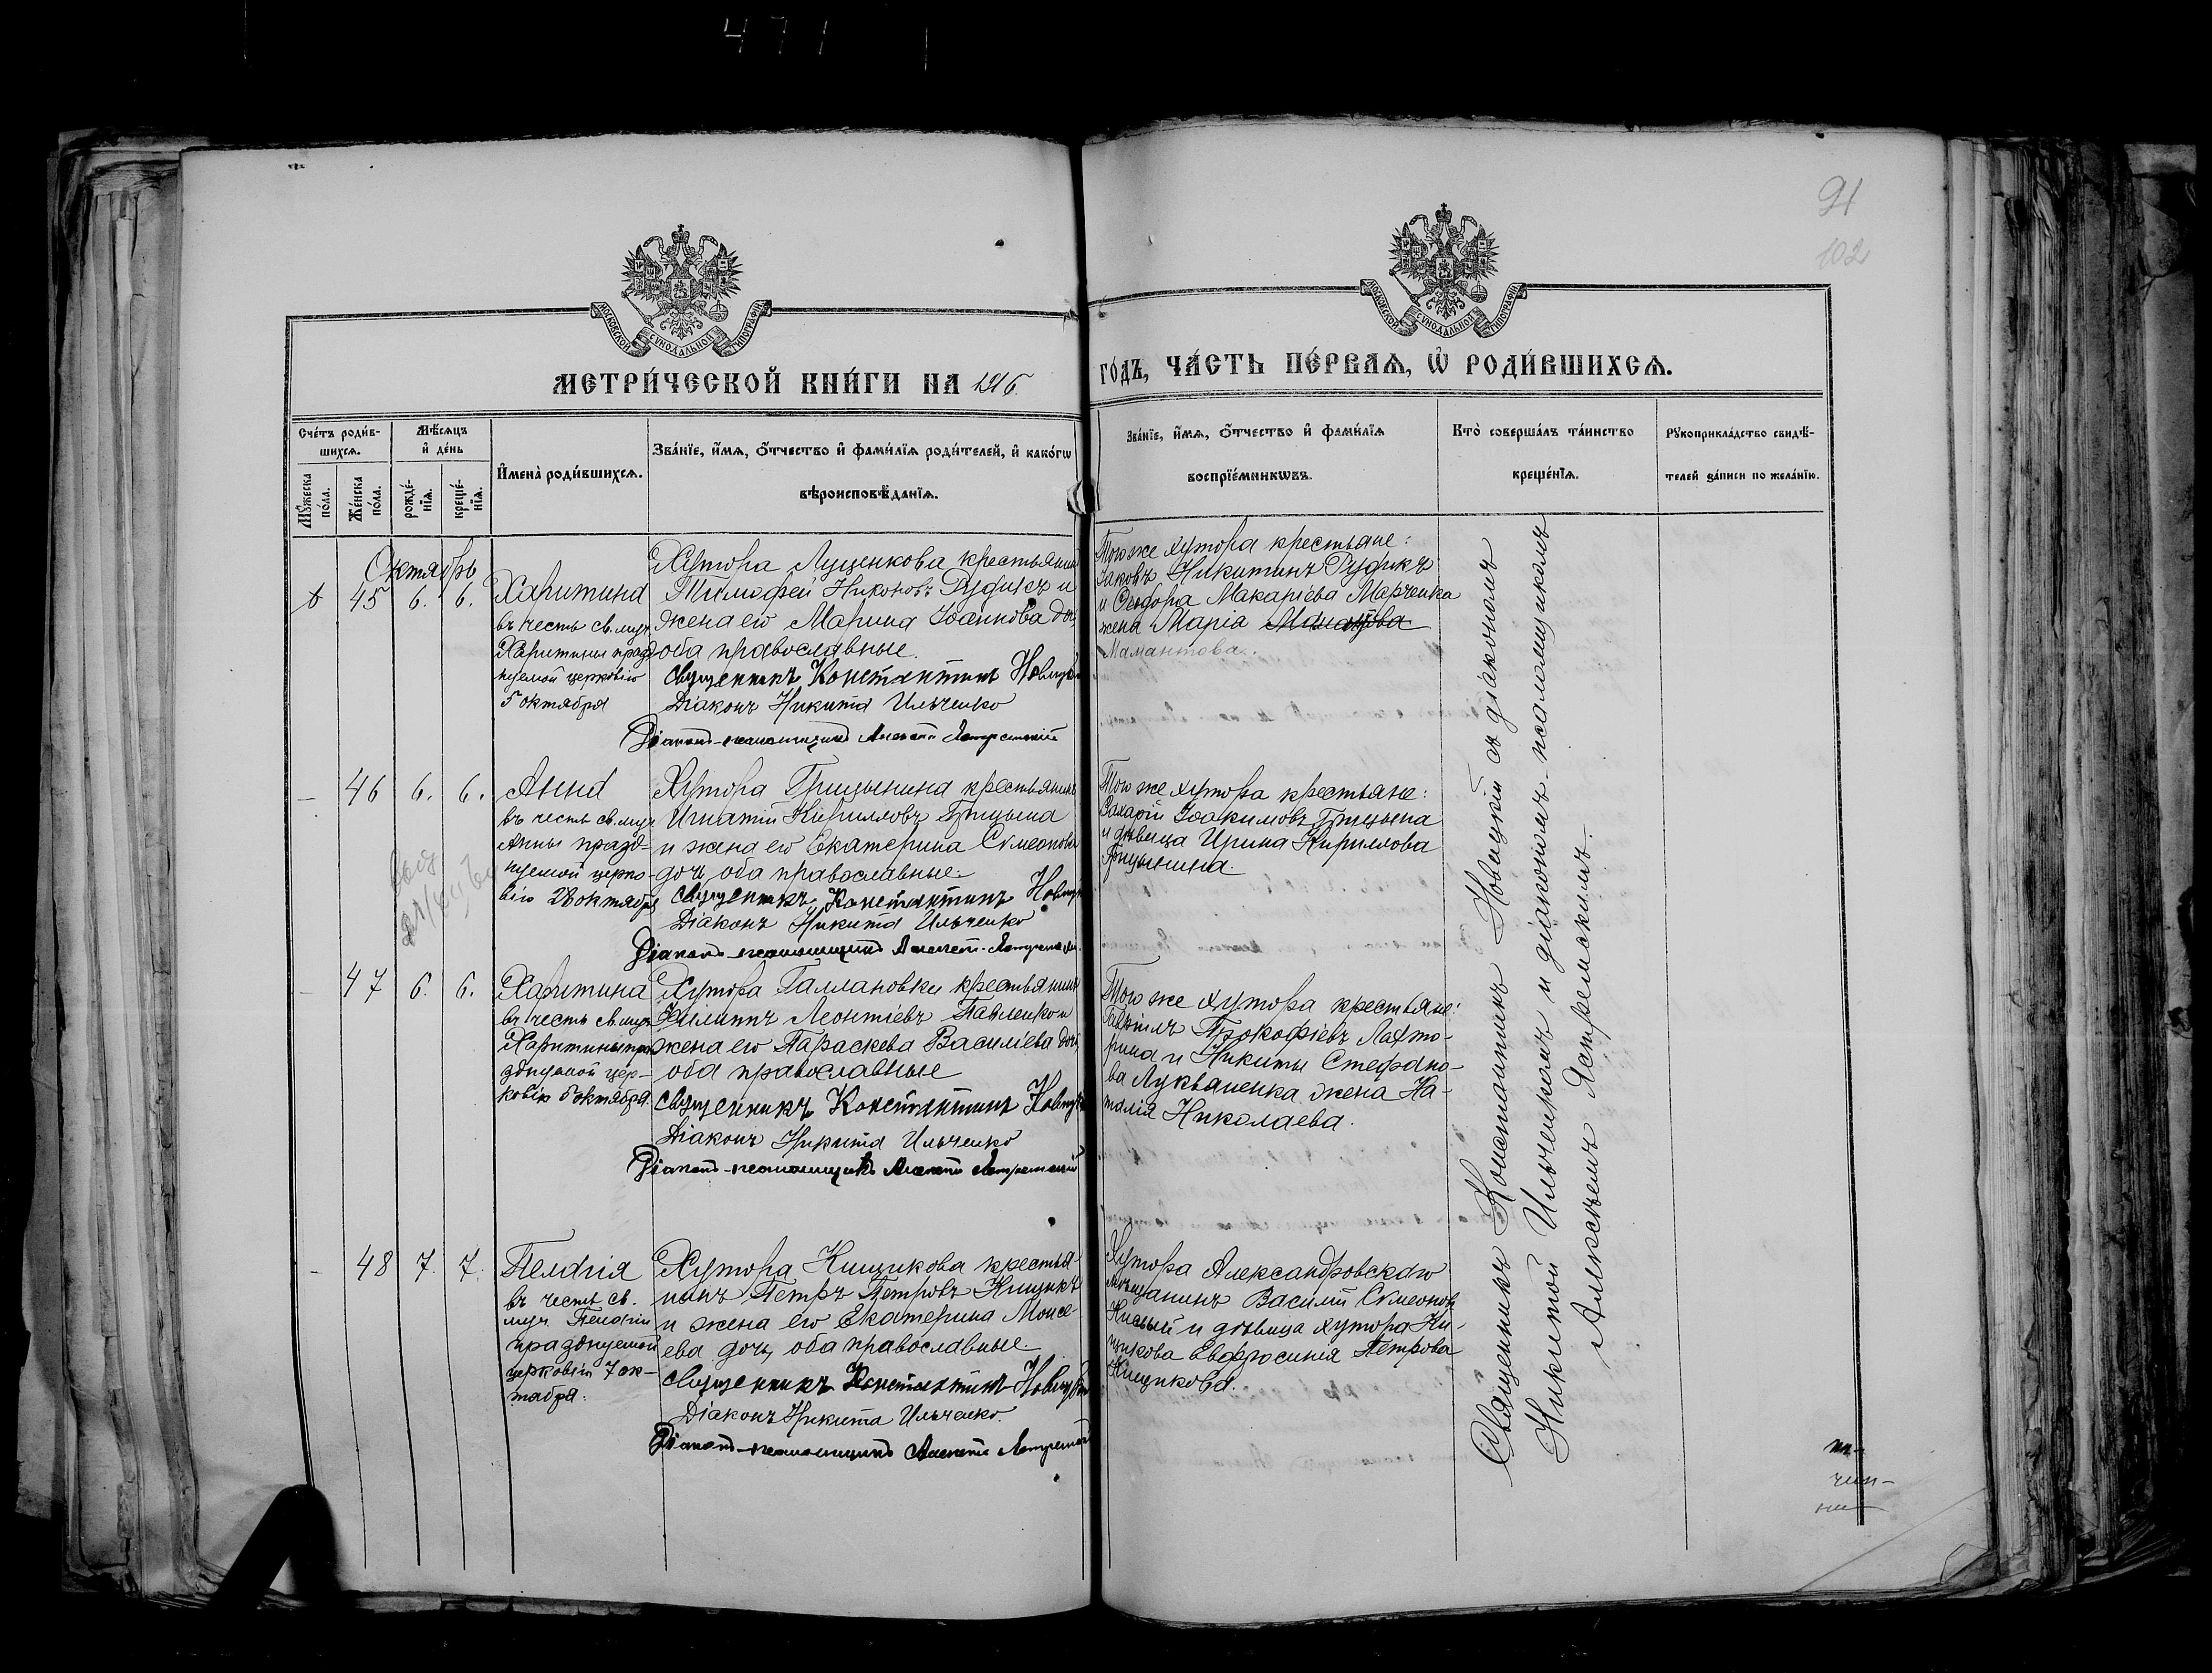 471
91
102
МОСКОВСКОЙ СѴНОДАЛЬНОЙ ТИПОГРАФІИ
МОСКОВСКОЙ СѴНОДАЛЬНОЙ ТИПОГРАФІИ
МЕТРИ́ЧЕСКОЙ КНИ́ГИ НА 1916
ГО́ДЪ, ЧА́СТЬ ПЕ́РВАѦ, Ѿ РОДИ́ВШИХСѦ.
Сче́тъ роди́в-
шихсѧ.
Мꙋ́жеска
по́ла.
Же́нска
по́ла.
Мѣ́сѧцъ
и҆ де́нь
рожде́-
нїѧ.
креще́-
нїѧ.
И҆мена̀ роди́вшихсѧ.
Зва́нїе, и҆́мѧ, ѻ҆́тчество и҆ фами́лїѧ роди́телей, и҆ како́гѡ
вѣроисповѣ́данїѧ.
Зва́нїе, и҆́мѧ, ѻ҆́тчество и҆ фами́лїѧ
воспрїе́мникѡвъ.
Кто̀ соверша́лъ та́инство
креще́нїѧ.
Рꙋкоприкла́дство свидѣ́-
телей за́писи по жела́нїю.
Октябрь
45 6. 6.
Харитина
въ честь св. муч.
Харитины празд-
нуемой церковію
5 октября
Хутора Луценкова крестьянинъ
Тимофей Никоновъ Рудикъ и
жена его Марина Іоаннова дочь,
оба православные.
Священникъ Константинъ Новицкій
Діаконъ Никита Ильченко
Діаконъ-псаломщикъ Алексѣй Ястремскій
Того же хутора крестьяне:
Іаковъ Никитинъ Рудикъ
и Ѳеодора Макаріева Марченка
жена Марія
Мамантова.
– 46 6. 6.
Анна
въ честь св. муч.
Анны празд-
нуемой церко-
вію 28 октября
Хутора Грицынина крестьянинъ
Игнатій Кирилловъ Грицына
и жена его Екатерина Сѵмеонова
дочь, оба православные.
Священникъ Константинъ Новицкій
Діаконъ Никита Ильченко
Діаконъ-псаломщикъ Алексѣй Ястремскій
Того же хутора крестьяне:
Захарій Іоакимовъ Грицына
и дѣвица Ирина Кириллова
Грицынина.
– 47 6. 6.
Харитина
въ честь св. муч.
Харитины пра-
зднуемой цер-
ковію 5 октября.
Хутора Галлановки крестьянинъ
Филиппъ Леонтіевъ Павленко и
жена его Параскева Василіева дочь,
оба православные
Священникъ Константинъ Новицкій
Діаконъ Никита Ильченко
Діаконъ-псаломщикъ Алексѣй Ястремскій
Того же хутора крестьяне:
Гавріилъ Прокофіевъ Лахто-
рина и Никиты Стефано-
ва Лукьяненка жена На-
талія Николаева.
– 48 7. 7.
Пелагія
въ честь св.
муч. Пелагіи
празднуемой
церковію 7 ок-
тября.
Хутора Кищикова крестья-
нинъ Петръ Петровъ Кищикъ
и жена его Екатерина Моисе-
ева дочь, оба православные.
Священникъ Константинъ Новицкій
Діаконъ Никита Ильченко.
Діаконъ-псаломщикъ Алексѣй Ястремскій
Хутора Александровскаго
мѣщанинъ Василій Сѵмеоновъ
и дѣвица хутора Ки-
щикова Евфросинія Петрова
Кищикова.
Священникъ Константинъ Новицкій съ діакономъ
Никитой Ильченкомъ и діакономъ-псаломщикомъ
Алексѣемъ Ястремскимъ.